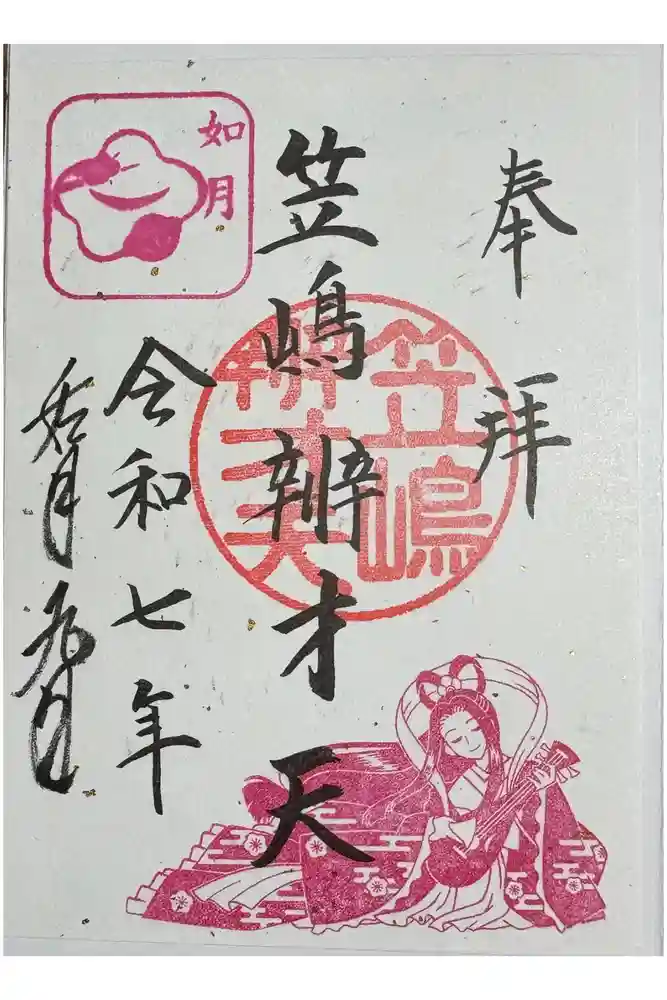 奉拝
笠嶋辨才天
笠嶋
辨天
如月
令和七年
如月九日